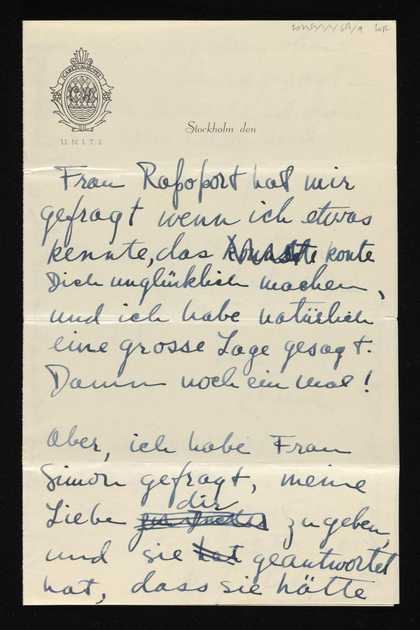 UNITI
Stockholm den
Frau Rapoport hat mir
gefragt wenn ich etwas
kennte, das konte
Dich unglücklich machen,
und ich habe natürlich
eine grosse Lage gesagt.
Damn noch ein mal!
Aber, ich habe Frau
Simon gefragt, meine
dir
Liebe zu geben,
und sie hat geantwortet
hat, dass sie hätte